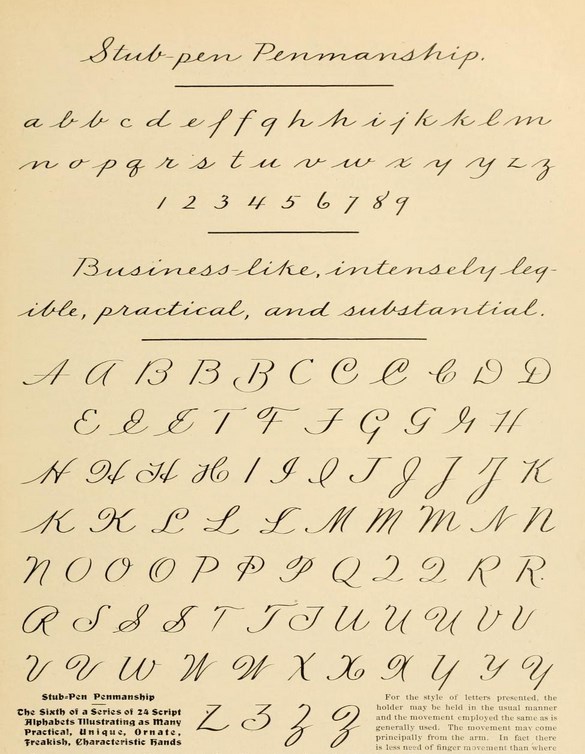 Stub-pen Penmanship.
a b b c d e f f g h h i j k k l m
n o p q r s t u v w x y y z z
1 2 3 4 5 6 7 8 9
Business-like, intensely leg-
ible, practical, and substantial.
A A B B B C C C C D D
E E E T F F G G G H
H H H H I I I J J J J K
K K L L L M M M N N
N O O O P P P Q Q Q R R.
R S S S T T T U U U V V
V V W W W X X X Y Y Y
Z Z Z Z
Stub-Pen Penmanship
The Sixth of a Series of 24 Script
Alphabets Illustrating as Many
Practical, Unique, Ornate,
Freakish, Characteristic Hands
For the style of letters presented, the
holder may be held in the usual manner
and the movement employed the same as is
generally used. The movement may come
principally from the arm. In fact there
is less need of finger movement than where